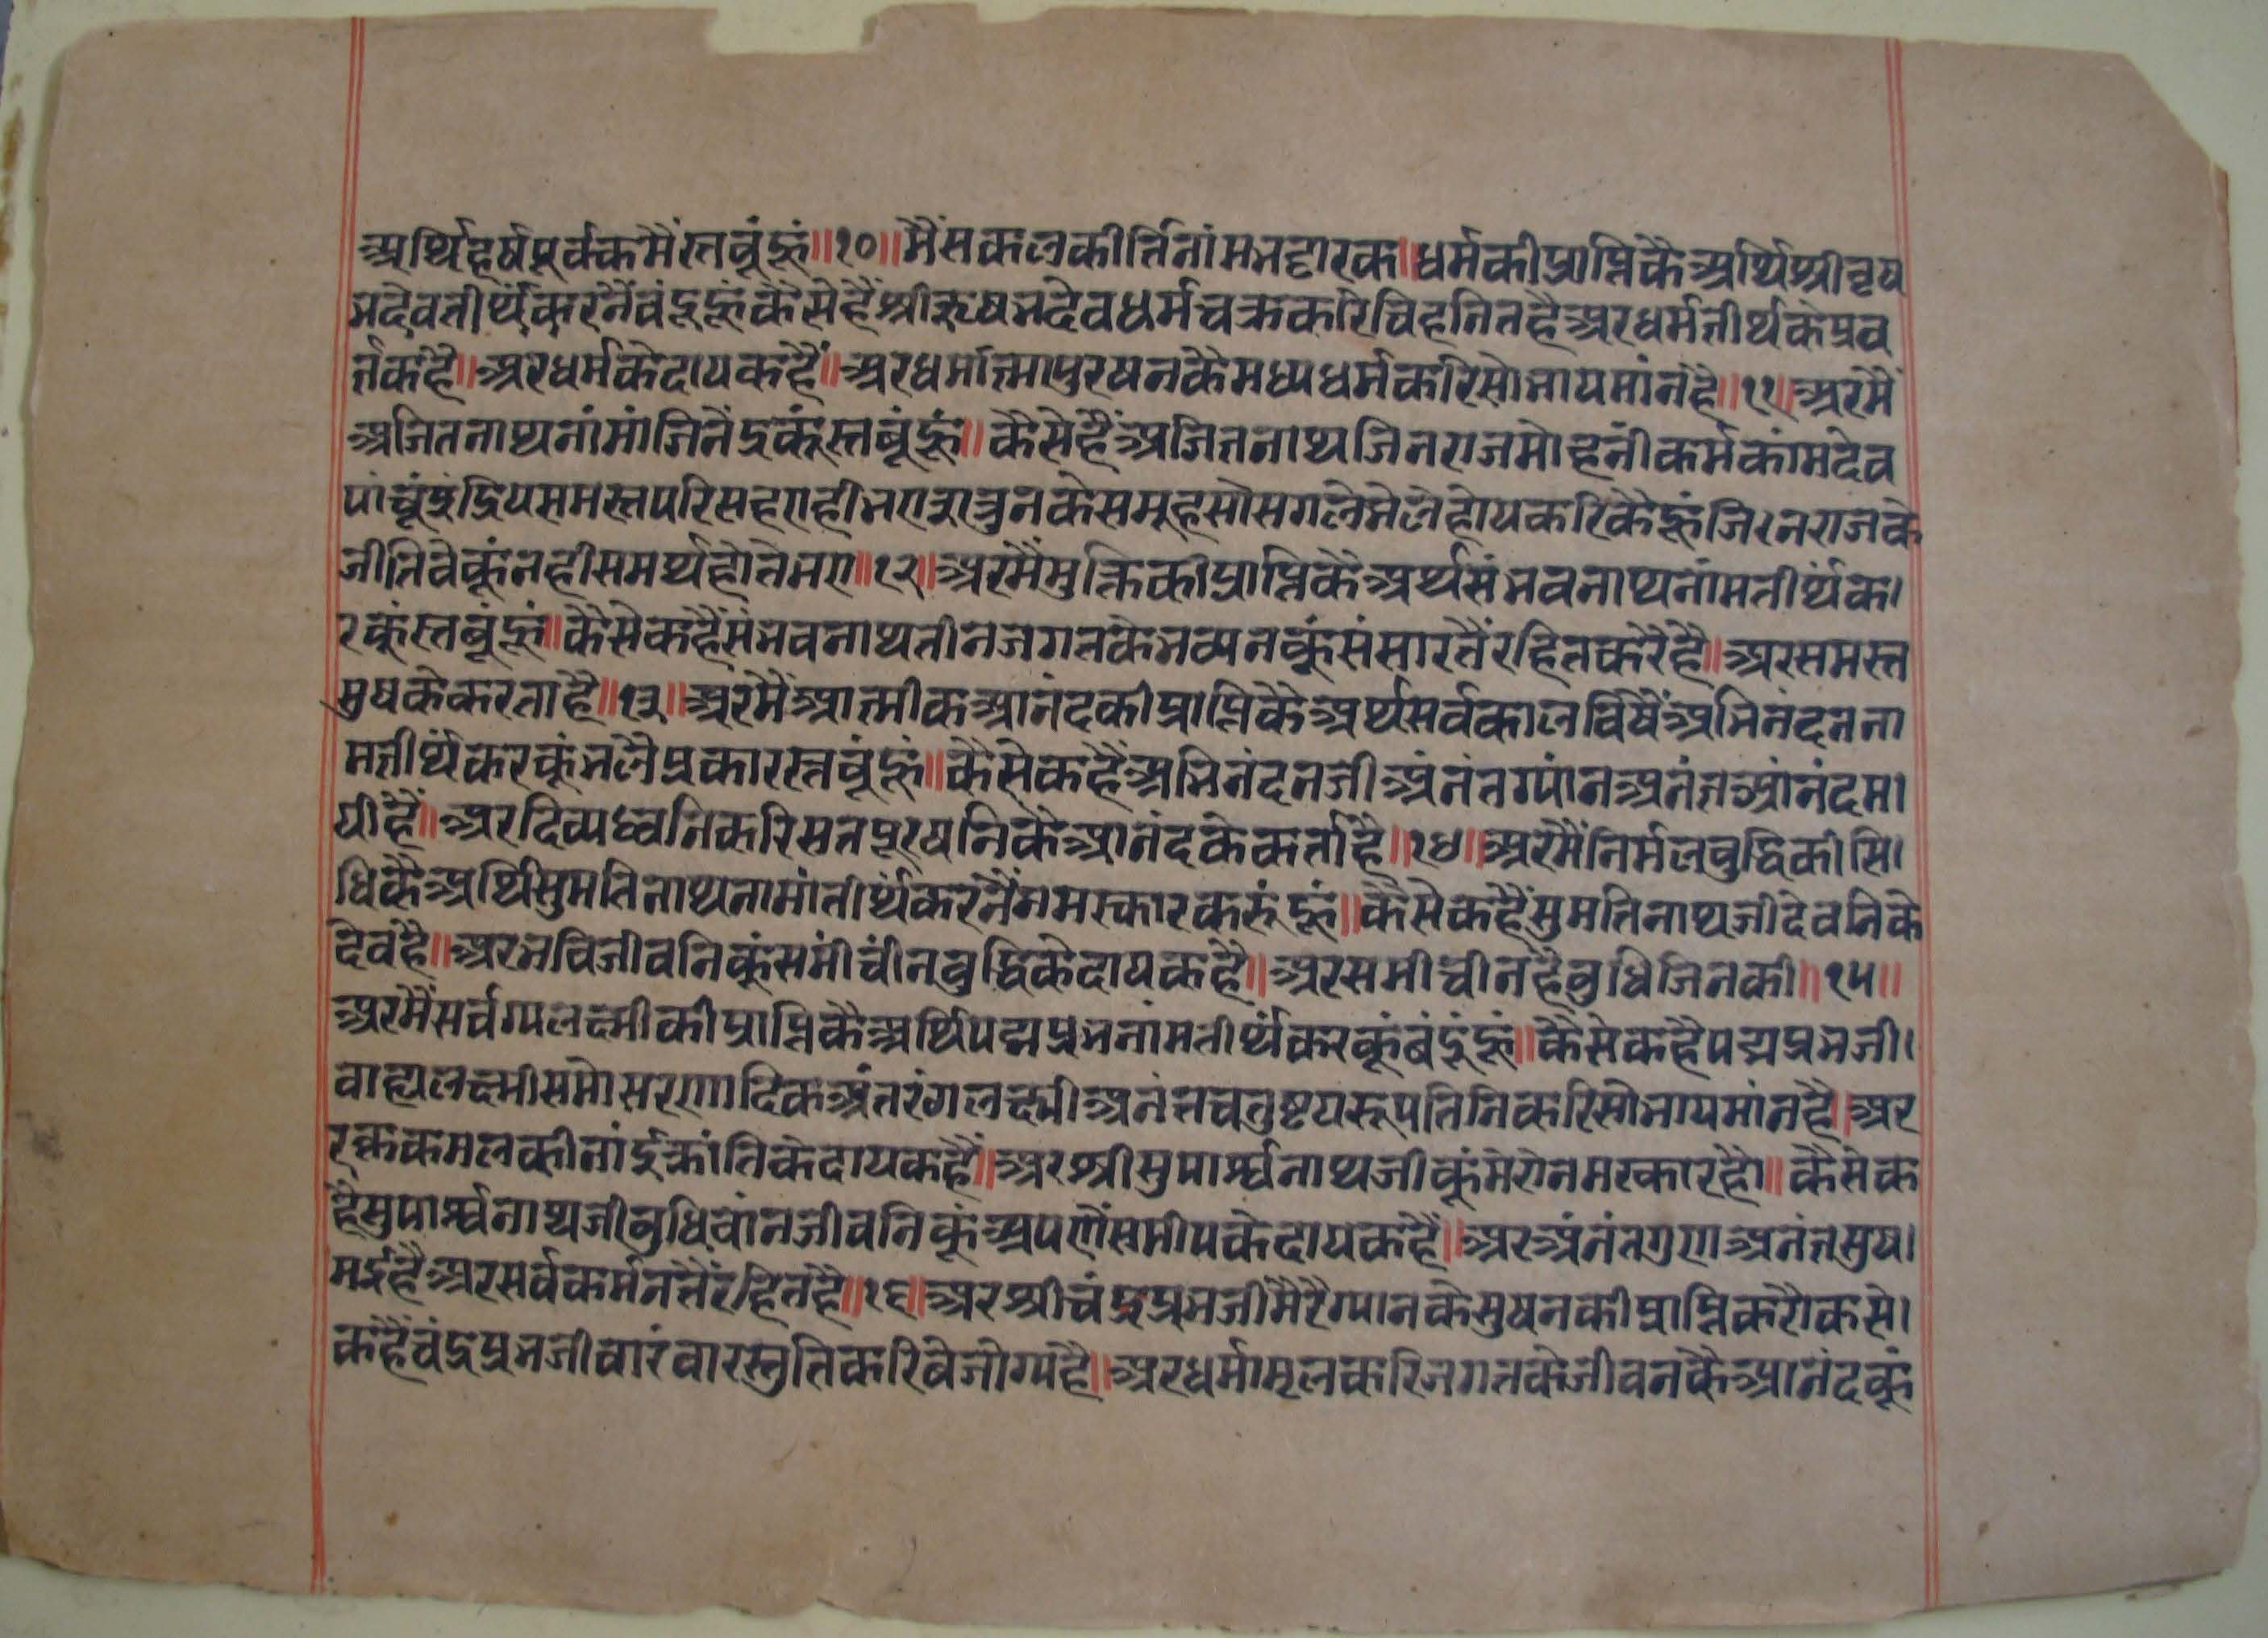 अर्थिहर्षपूर्वकमैंस्तवूंहूं॥१०॥मैंसकलकीर्त्तिनांमभट्टारक॥धर्मकीप्राप्तिकैअर्थिश्रीवृष
भदेवतीर्थंकरनैंवंदूहूंकैसेहैंश्रीऋषभदेवधर्मचक्रकरिचिहनितहैअरधर्मतीर्थकेप्रव
र्त्तकहै॥अरधर्मकेदायकहैं॥अरधर्मात्मापुरषनकैमध्यधर्मकरिसोभायमांनहै॥११॥अरमैं
अजितनाथनांमांजिनेंद्रकूंस्तवूंहूं॥कैसेहैंअजितनाथजिनराजमोहनींकर्मकांमदेव
पांचूंइंद्रियसमस्तपरिसहएहीभएशत्रुनकेसमूहसोसगलेभेलेहोयकरिकैहूंजिनराजके
जीतिवेकूंनहीसमर्थहोतेभए॥१२॥अरमैंमुक्तिकीप्राप्तिकैअर्थसंभवनाथनांमतीर्थंक।
रकूंस्तवूंहूं॥कैसेकहैंसंभवनाथतीनजगतकेभव्यनकूंसंसारतैंरहितकरैहै॥अरसमस्त
सुषकेकरताहै॥१३॥अरमैंआत्मीकआनंदकीप्राप्तिकैअर्थसर्वकालविषैंअभिनंदनना
मतीर्थंकरकूंभलेप्रकारस्तवूंहूं॥कैसेकहैंअभिनंदनजीअनंतग्यांनअनंतआनंदम।
यीहैं॥अरदिव्यध्वनिकरिसतपुरषनिकैआनंदकेकर्ताहै॥१४॥अरमैंनिर्मलवुद्धिकीसि।
धिकैअर्थिसुमतिनाथनामांतीर्थंकरनैंनमस्कारकरुंहूं॥कैसेकहैंसुमतिनाथजीदेवनिके
देवहै॥अरभविजीवनिकूंसमींचींनवुद्धिकेदायकहै॥अरसमीचीनहैवुधिजिनकी॥१५॥
अरमैंसर्वग्यलक्ष्मीकीप्राप्तिकैअर्थिपद्मप्रभनांमतीर्थंकरकूंबंदूंहूं॥कैसेकहैपद्मप्रभजी।
वाह्यलक्ष्मीसमोसरणादिकअंतरंगलक्ष्मीअनंतचतुष्टयरूपतिनिकरिसोभायमांनहै।अर
रक्तकमलकीनांईक्रांतिकेदायकहैं॥अरश्रीसुपार्श्वनाथजीकूंमेरोनमस्कारहो॥कैसेक
हैंसुपार्श्वनाथजीवुधिवांनजीवनिकूंअपणेंसमीपकेदायकहैं॥अरअनंतगुणअनंतसुष।
मईहैअरसर्वकर्मनतैंरहितहै॥१६॥अरश्रीचंद्रप्रभजीमेरैग्यानकेसुषनकीप्राप्तिकरौकसे।
कहैंचंद्रप्रभजीवारंवारस्तुतिकरिवेजोग्यहै॥अरधर्मामृतकरिजगतकेजीवनकैआनंदकूं